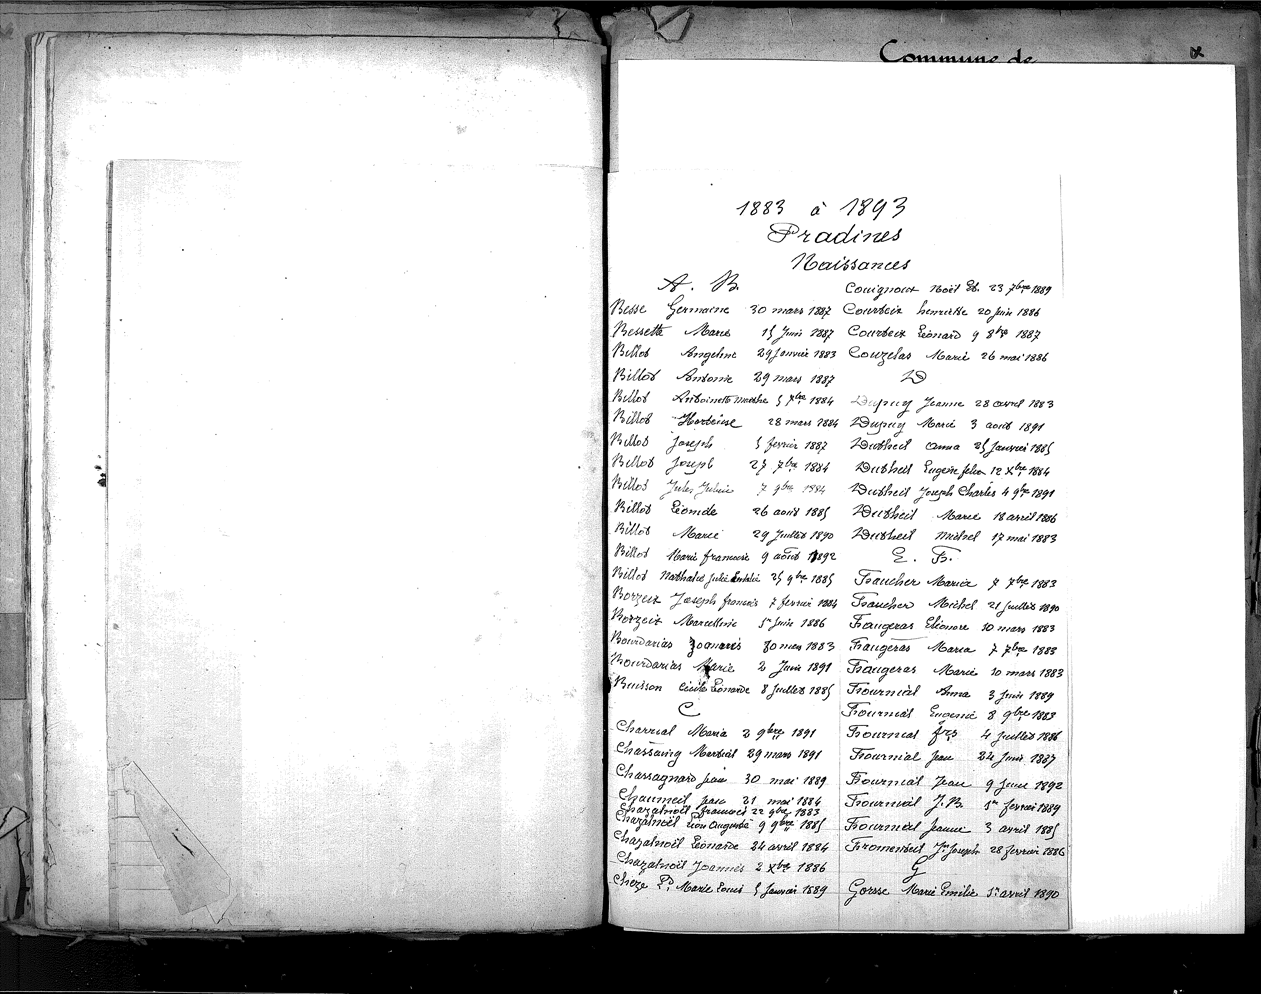 Commune de
1883 à 1893
Pradines
Naissances
A. B.
Besse Germaine 30 mars 1887
Bessette Marie 15 Juin 1887
Billot Angeline 29 Janvier 1883
Billot Antonie 29 mars 1887
Billot Antoinette marthe 5 7bre 1884
Billot Hortense 28 mars 1884
Billot Joseph 5 fevrier 1887
Billot Joseph 27 7bre 1884
Billot Jules Julien 7 9bre 1884
Billot Léonide 26 août 1885
Billot Marie 29 Juillet 1890
Billot Marie francoise 9 août 1892
Billot Nathalie Julie 25 9bre 1885
Borzeix Joseph francois 7 fevrier 1884
Borzeix Marcelline 1er Juin 1886
Bourdarias 30 mars 1883
Bourdarias Marie 2 Juin 1891
Buisson Cécile Léonarde 8 Juillet 1885
C
Charrial Maria 2 9bre 1891
Chassaing Martial 29 mars 1891
Chassagnard Jean 30 mai 1889
Chaumeil Jean 21 mai 1884
Chazalnoël francois 22 9bre 1883
Chazalnoël Léon Auguste 9 9bre 1885
Chazalnoël Léonarde 24 avril 1884
Chazalnoël Joannis 2 Xbre 1886
Cheze Marie Louis 5 Janvier 1889
Couignoux Noël Et. 23 7bre 1889
Courteix henriette 20 Juin 1886
Courteix Léonard 9 8bre 1887
Couzelas Marie 26 mai 1886
D
Dupuy Jeanne 28 avril 1883
Dupuy Marie 3 août 1891
Dutheil Anna 25 Janvier 1885
Dutheil Eugene felix 12 Xbre 1884
Dutheil Joseph Charles 4 9bre 1891
Dutheil Marie 18 avril 1886
Dutheil Michel 17 mai 1883
E. F.
Faucher Maria 7 7bre 1883
Faucher Michel 21 Juillet 1890
Faugeras Eléonore 10 mars 1883
Faugeras Maria 7 7bre 1883
Faugeras Marie 10 mars 1883
Fournial Anna 3 Juin 1889
Fournial Eugenie 8 9bre 1883
Fournial frs 4 Juillet 1886
Fournial Jean 24 Juin 1887
Fournial Jean 9 Juin 1892
Fournial J.B. 1er fevrier 1889
Fournial Jeanne 3 avril 1885
Fromenteil Jn Joseph 28 fevrier 1886
G
Gorsse Marie Emilie 1er avril 1890